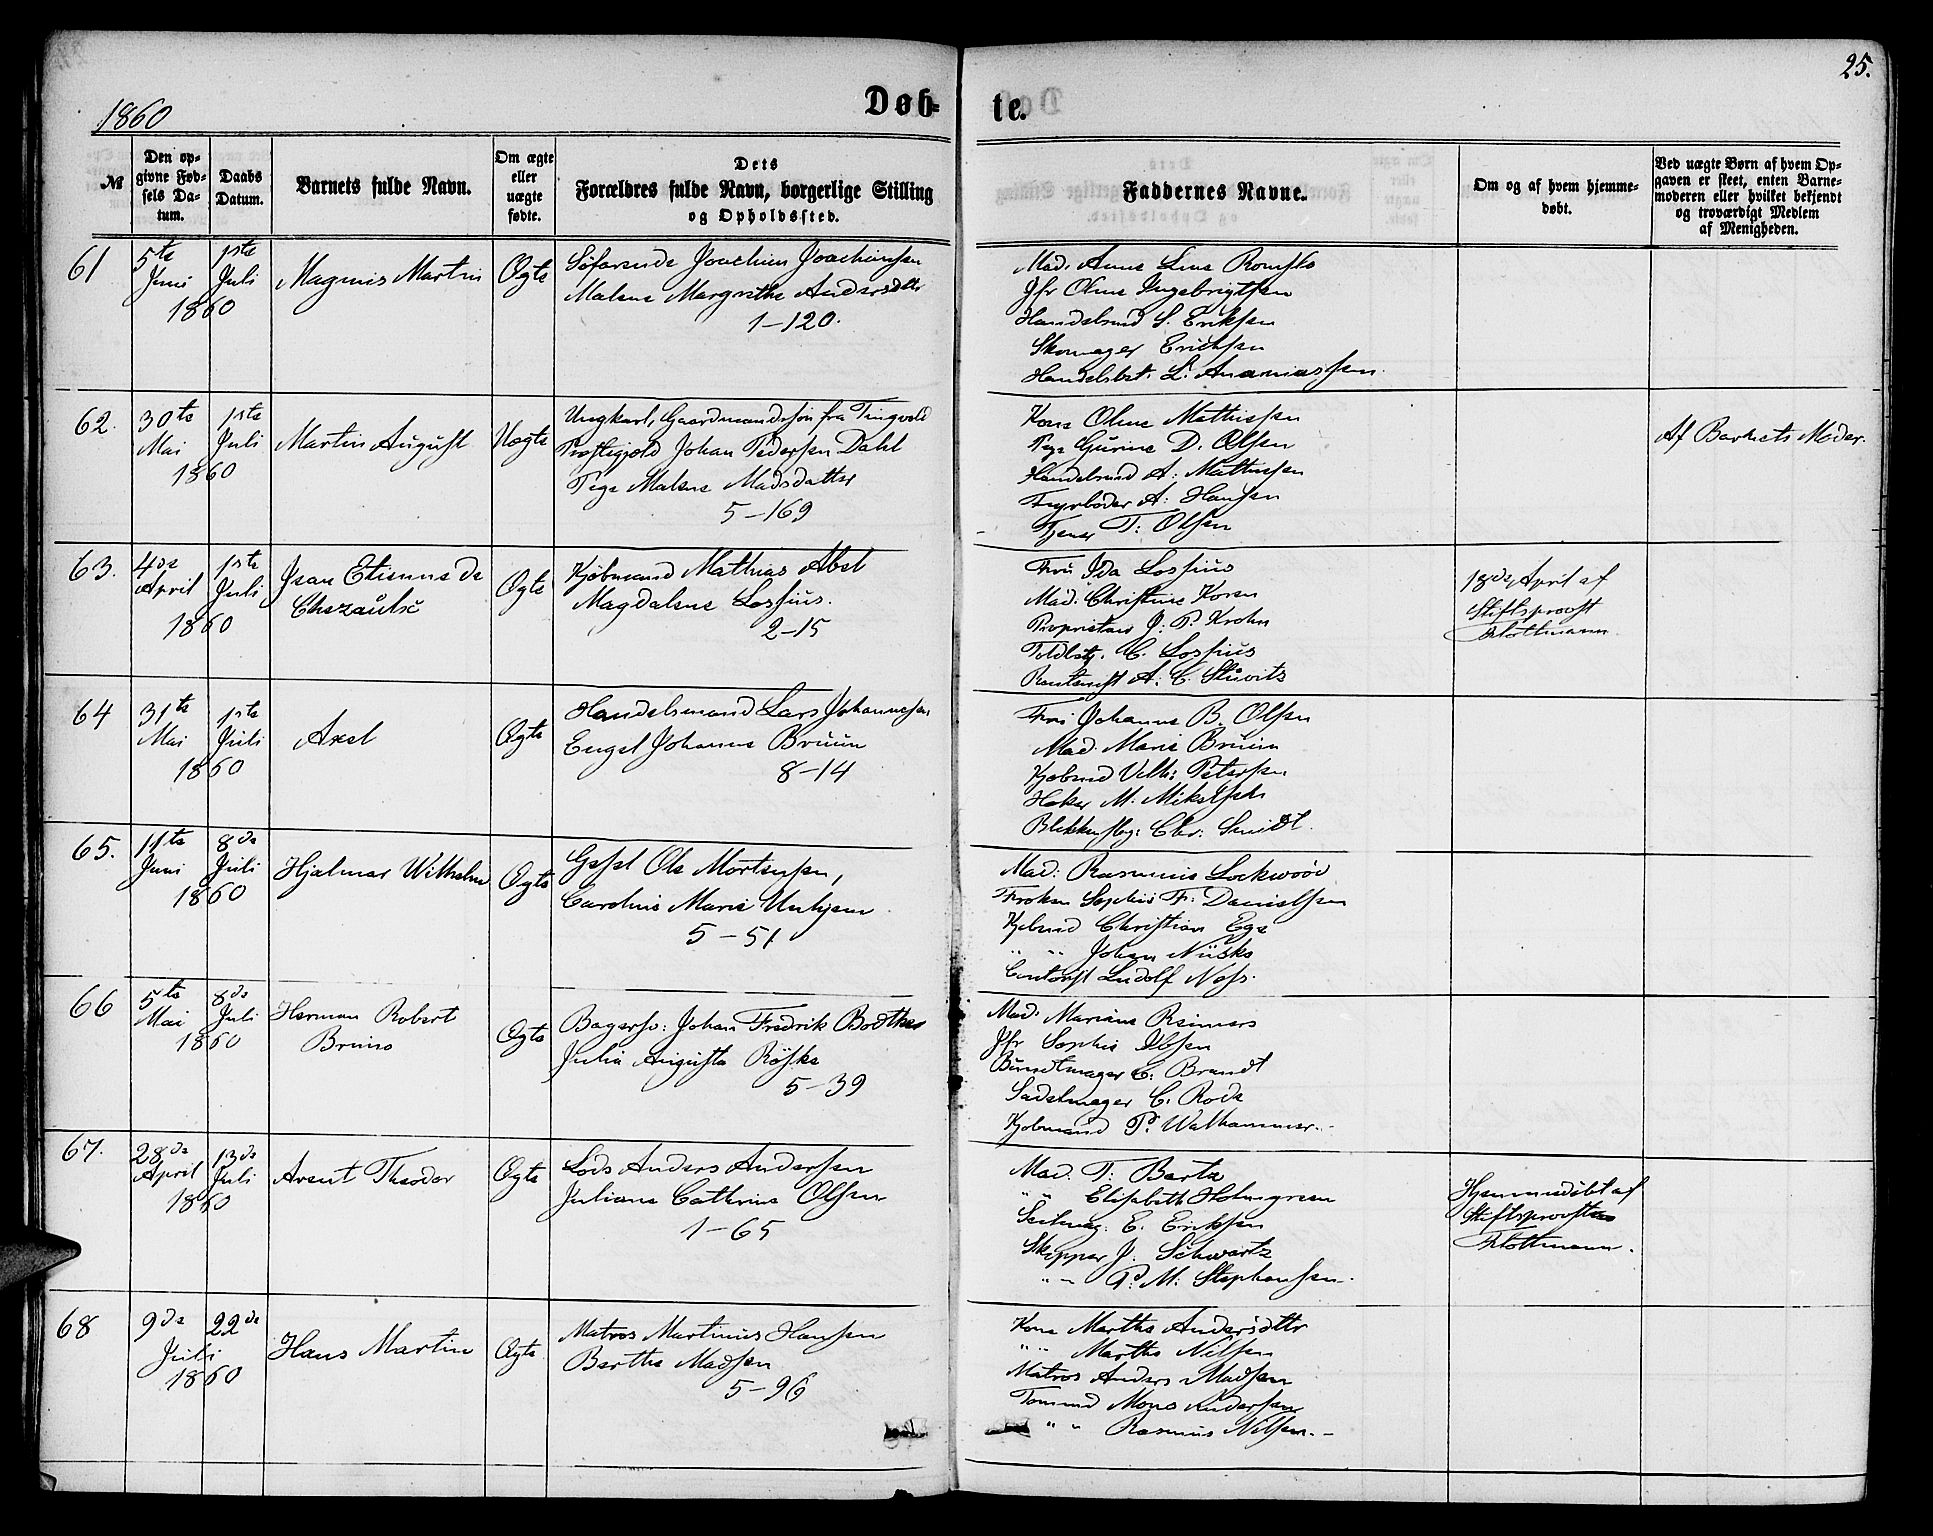 25.
1860
Døb-
te.
№
Den op-
givne Fød-
sels Da-
tum.
Daabs
Datum.
Barnets fulde Navn.
Om ægte
eller
uægte
fødte.
Dets
Forældres fulde Navn, borgerlige Stilling
og Opholdssted.
Faddernes Navne.
Om og af hvem hjemme-
døbt.
Ved uægte Børn af hvem Op-
gaven er skeet, enten Barne-
moderen eller hvilket bekjendt
og troværdigt Medlem
af Menigheden.
61
5te
Juni
1ste
Juli
1860
Magnus Martin
Ægte
Søfarende Joachim Joachimsen
Malene Margrethe Andersdttr
1-120.
Mad. Anne Line
Jfr Oline Ingebrigtsen
Handelsmd S. Eriksen
Skomager Erichsen
Handelsbet. L. Ananiassen.
62.
30te
Mai
1ste
Juli
1860
Martin August
Uægte
Ungkarl, Gaardmandssøn fra Tingvold
Præstegjeld Johan Pedersen Dahl
Pige Malene Madsdatter
5-169
Kone Oline Mathissen
Pige Gurine D. Olsen
Handelsmd A. Mathisen
Fyrbøder A. Hansen
Tjener T. Olsen
Af Barnets Moder.
63.
4de
April
1ste
Juli
1860
Jean Etienne de
Chezaulx
Ægte
Kjøbmand Mathias Abel
Magdalene Lossius.
2-15
Fru Ida Lossius
Mad. Christine Koren
Proprietær J. P. Krohn
C. Lossius
A. C. Stuvitz
18de April af
Stiftsprovst
Flottmann.
64
31te
Mai
1ste
Juli
1860
Axel
Ægte
Handelsmand Lars Johannesen
Engel Johanne Bruun
8-14
Fru Johanne B. Olsen
Mad. Marie Bruun
Kjøbmd Vilh: Petersen
Høker M. Mikelsen
Blikkenslag: Chr: Smidt.
65.
11te
Juni
8de
Juli
1860
Hjalmar Wilhelm
Ægte
Gesel Ole Mortensen,
Caroline Marie Unhjem
5-51
Mad: Rasmine Lockwood
Frøken Sophie F. Danielsen
Kjøbmd Christian Ege
" " Johan
Contorist Ludolf
66
5te
Mai
8de
Juli
1860
Herman Robert
Bruno
Ægte
Bagersv: Johan Fredrik Bodtker
Julia Augusta Röske
5-39
Mad. Mariane Reimers
Jfr Sophie Ibsen
Bundtmager C. Brandt
Sadelmager C. Rode
Kjøbmand P. Walhammer.-
67.
28de
April
13de
Juli
1860
Arent Theodor
Ægte
Lods Anders Andersen
Juliane Cathrine Olsen
1-65
Mad. T. Bartz
" " Elisabeth Holmgreen
Seilmag. E. Eriksen
Skipper J. Schwartz
" " P. M. Stephansen.
Hjemmedöbt af
Stiftsprovsten
Flottmann.
68
9de
22de
Juli
1860
Hans Martin
Ægte
Matros Martinus Hansen
Berthe Madsen
5-96
Kone Marthe Andersdttr
" " Marthe Nilsen
Matros Anders Madsen
Tommd Mons Andersen
" " Rasmus Nilsen.-